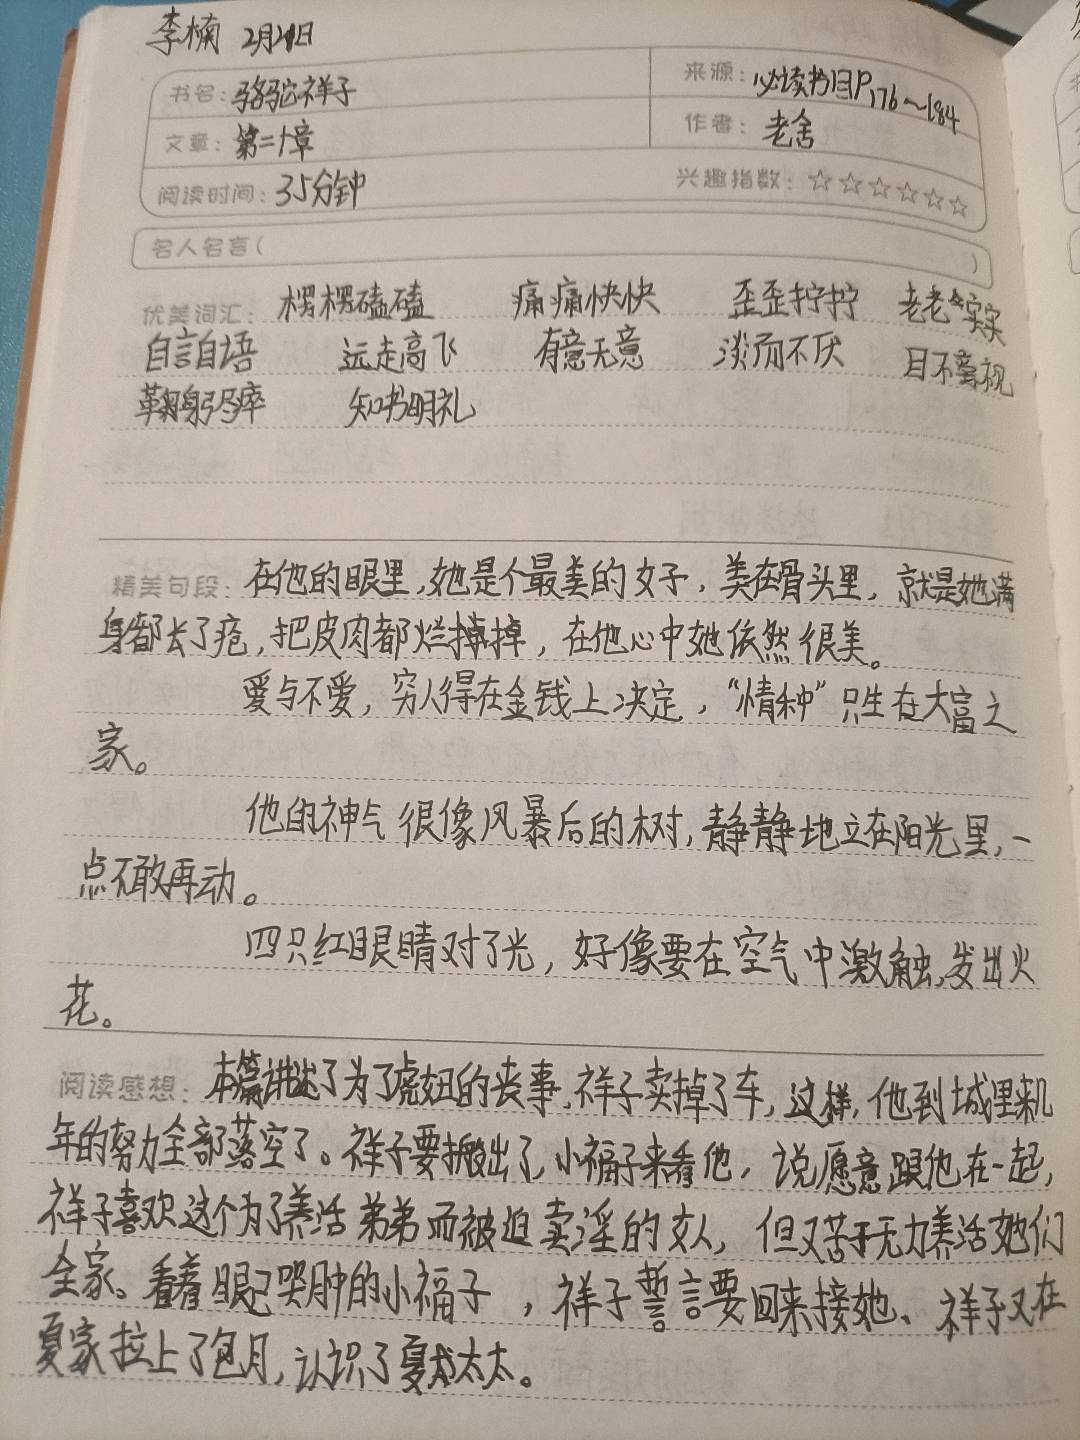 李楠 2月21日
书名：骆驼祥子 来源：必读书目P176～184
文章：第二十章 作者：老舍
阅读时间：35分钟 兴趣指数：☆☆☆☆☆☆
名人名言( )
优美词汇：楞楞磕磕 痛痛快快 歪歪拧拧 老老实实
自言自语 远走高飞 有意无意 淡而不厌 目不离视
鞠躬尽瘁 知书明礼
精美句段：在他的眼里,她是个最美的女子，美在骨头里，就是她满
身都长了疮，把皮肉都烂掉，在他心中她依然很美。
爱与不爱，穷人得在金钱上决定，“情种”只生在大富之
家。
他的神气很像风暴后的树,静静地立在阳光里,一
点不敢再动。
四只红眼睛对了光，好像要在空气中激触,发出火
花。
阅读感想：本篇讲述了为了虎妞的丧事,祥子卖掉了车，这样,他到城里来几
年的努力全部落空了。祥子要搬出了,小福子来看他，说愿意跟他在一起,
祥子喜欢这个为了养活弟弟而被迫卖淫的女人，但又苦于无力养活她们
全家。看着眼已哭肿的小福子，祥子誓言要回来接她、祥子又在
夏家拉上了包月,认识了夏太太。